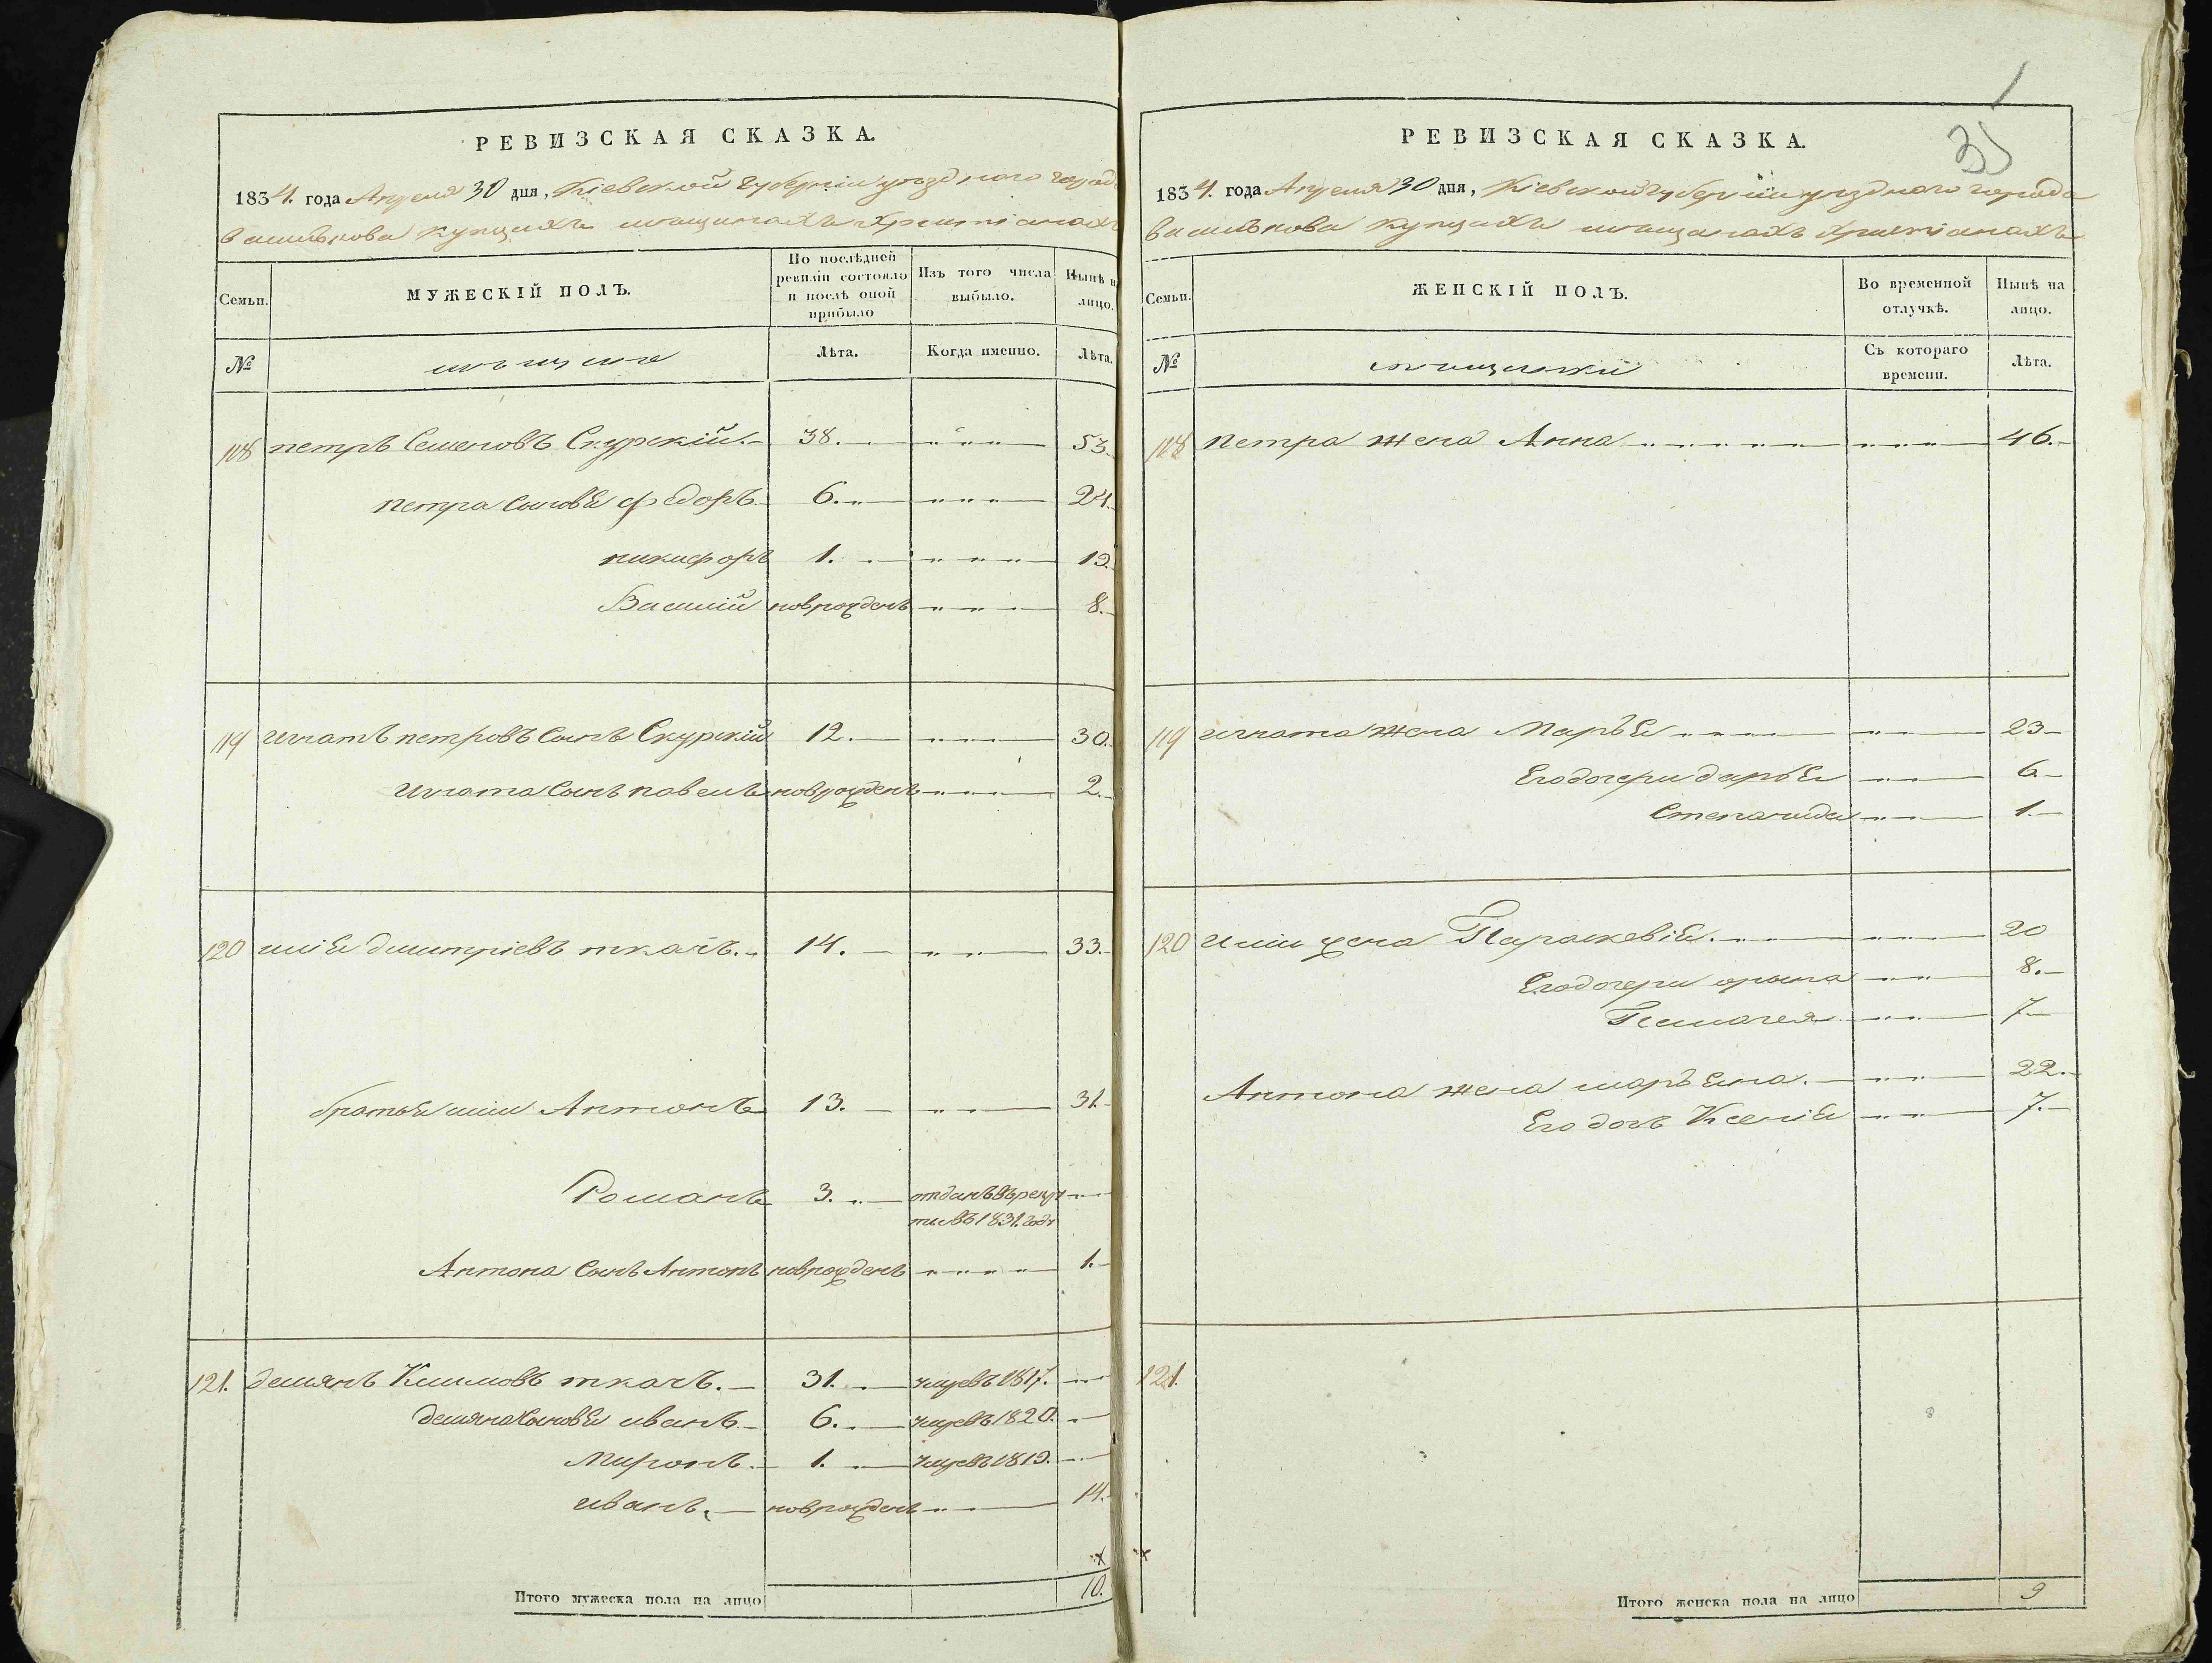 РЕВИЗСКАЯ СКАЗКА.
1834. года Апреля 30 дня, Кіевской губерніи уезднаго города
василькова купцахъ мещанахъ христіанахъ
Семьи.
МУЖЕСКІЙ ПОЛЪ.
По послѣдней ревизіи состояло и послѣ оной прибыло
Изъ того числа выбыло.
Нынѣ на лицо.
№
мещане
Лѣта.
Когда именно.
Лѣта.
118 петръ Семеновъ Скурскій 38. 53.
петра сыновья федоръ 6. 24.
никифоръ 1. 19.
Василій новрожденъ 8.
119 игнатъ петровъ сынъ Скурскій 12. 30.
игната сынъ павелъ новрожденъ 2.
120 илія дмитріевъ ткачъ. 14. 33.
братья иліи Антонъ 13. 31.
Романъ 3. отданъ въ рекру
ты въ 1831. году
Антона сынъ Антонъ новрожденъ 1.
121. демянъ Климовъ ткачъ. 31. умре въ 1817.
демяна сыновья иванъ 6. умре въ 1820.
миронъ 1. умре въ 1819.
иванъ. новрожденъ 14.
Итого мужеска пола на лицо 10.
35
РЕВИЗСКАЯ СКАЗКА.
1834. года Апреля 30 дня, Кіевской губерніи уезднаго города
василькова купцахъ мещанахъ христіанахъ
Семьи.
ЖЕНСКІЙ ПОЛЪ.
Во временной отлучкѣ.
Нынѣ на лицо.
№
мещанки
Съ котораго времени.
Лѣта.
118 петра жена Анна 46.
119 игната жена Марья 23
Его дочери дарья 6.
Степанида 1.
120 иліи жена Параскевія. 20
Его дочери орына 8.
Пелагея 7
Антона жена марьяна. 22.
Его дочь Ксенія 7.
121.
Итого женска пола на лицо 9